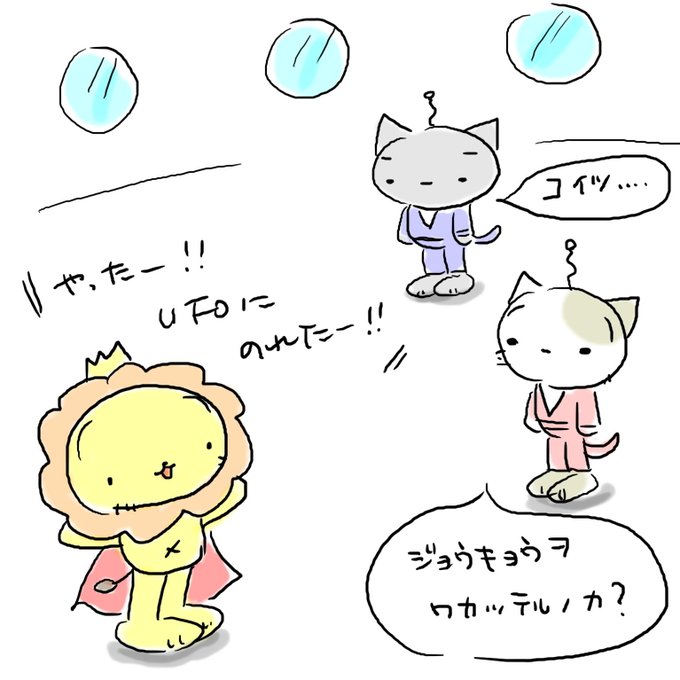 やったー!!
UFOに
のれたー!!
コイツ....
ジョウキョウヲ
ワカッテルノカ?